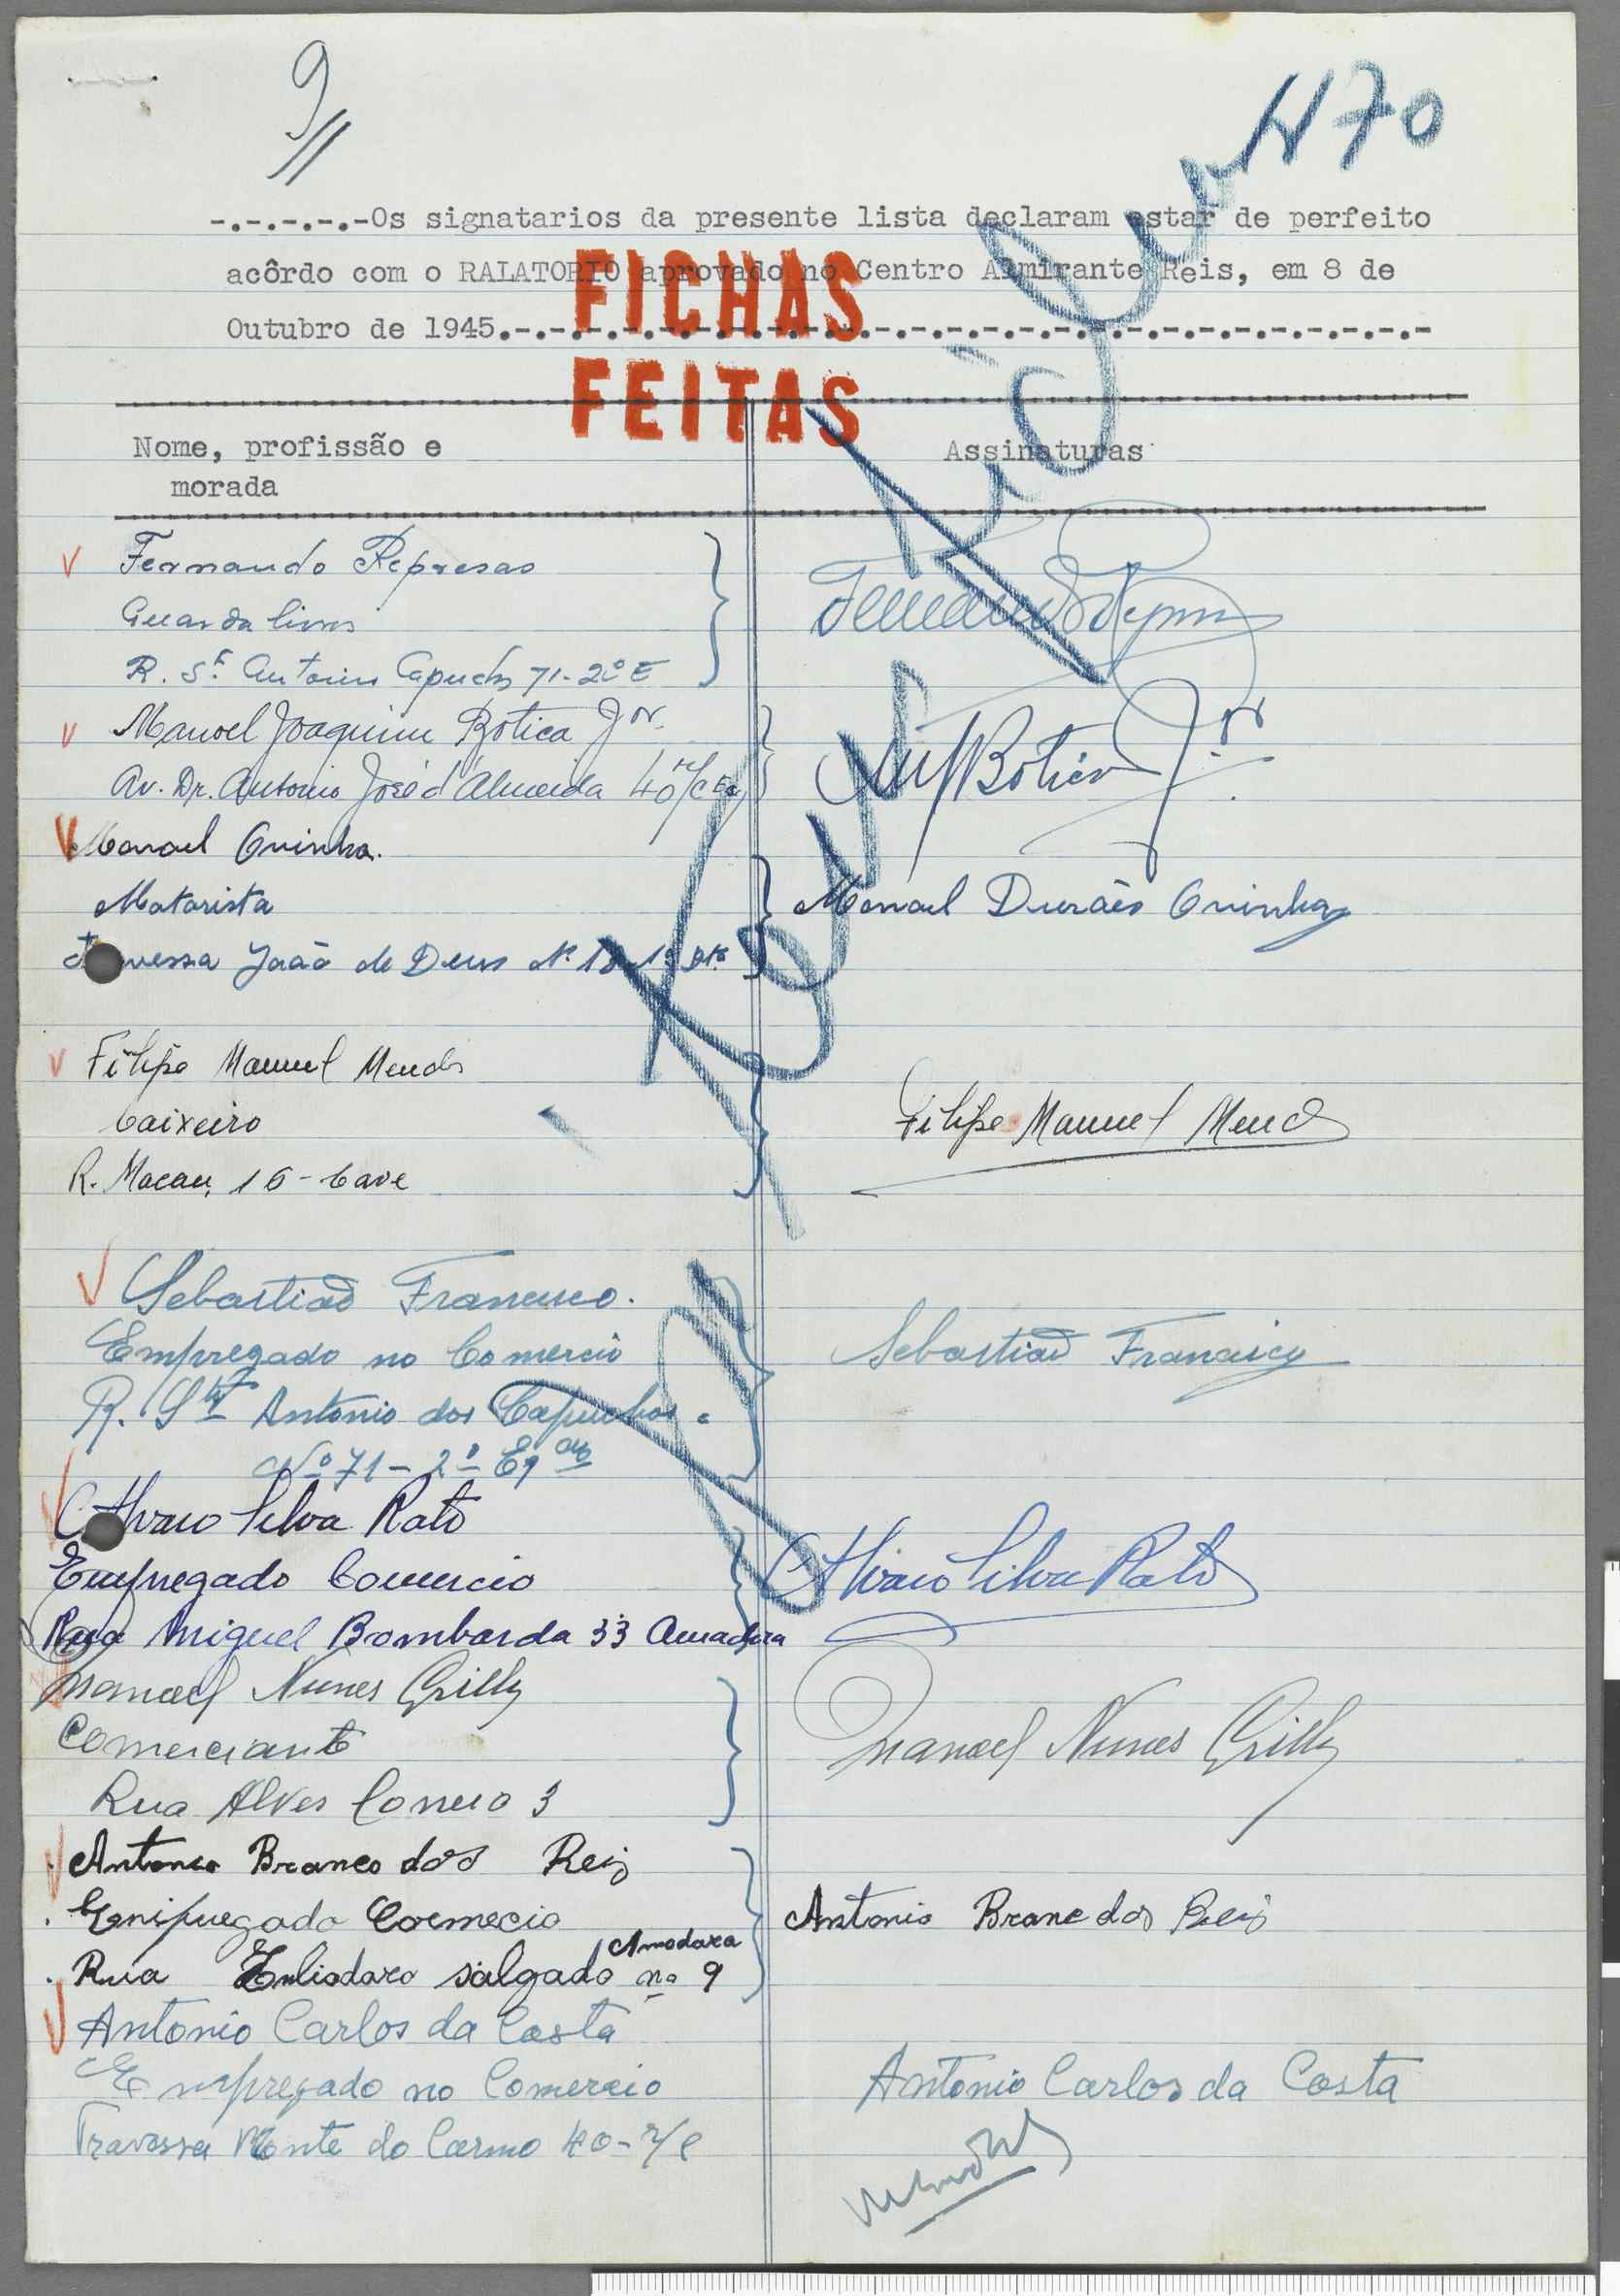 9
470
-.-.-.-.-Os signatarios da presente lista declaram estar de perfeito
acôrdo com o RALATORIO aprovado no Centro Almirante Reis, em 8 de
Outubro de 1945.-.-.-.-.-.-.-.-.-.-.-.-.-.-.-.-.-.-.-.-.-.-.-.-.-
FICHAS
FEITAS
Nome, profissão e
morada
Assinaturas
Fernando Represas
Guarda livros
R. Stº Antonio Capuchos 71-2º E
Manoel Joaquim Botica Jor.
Av. Dr. Antonio José d'Almeida 40 r/c Eq
Botica Jor
Manoel Ouinha.
Motorista
Travessa João de Deus Nº 18-1º Dtº
Manoel Durães Ouinha
Filipe Manuel Mendes
Caixeiro
R. Macau, 16 - Cave
Filipe Manuel Mendes
Sebastião Francisco.
Empregado no Comercio
R. Stº Antonio dos Capuchos.
Nº 71 - 2º Eqdo
Sebastião Francisco
Alvaro Silva Rato
Empregado Comercio
Rua Miguel Bombarda 33 Amadora
Alvaro Silva Rato
Manoel Nunes Grilly
Comerciante
Rua Alves Correia 3
Manoel Nunes Grilly
Antonio Branco dos Reis
Empregado Comecio
Amadora
Rua Eliodoro salgado nº 9
Antonio Branc dos Reis
Antonio Carlos da Costa
Empregado no Comercio
Travessa Monte do Carmo 40-r/c
Antonio Carlos da Costa